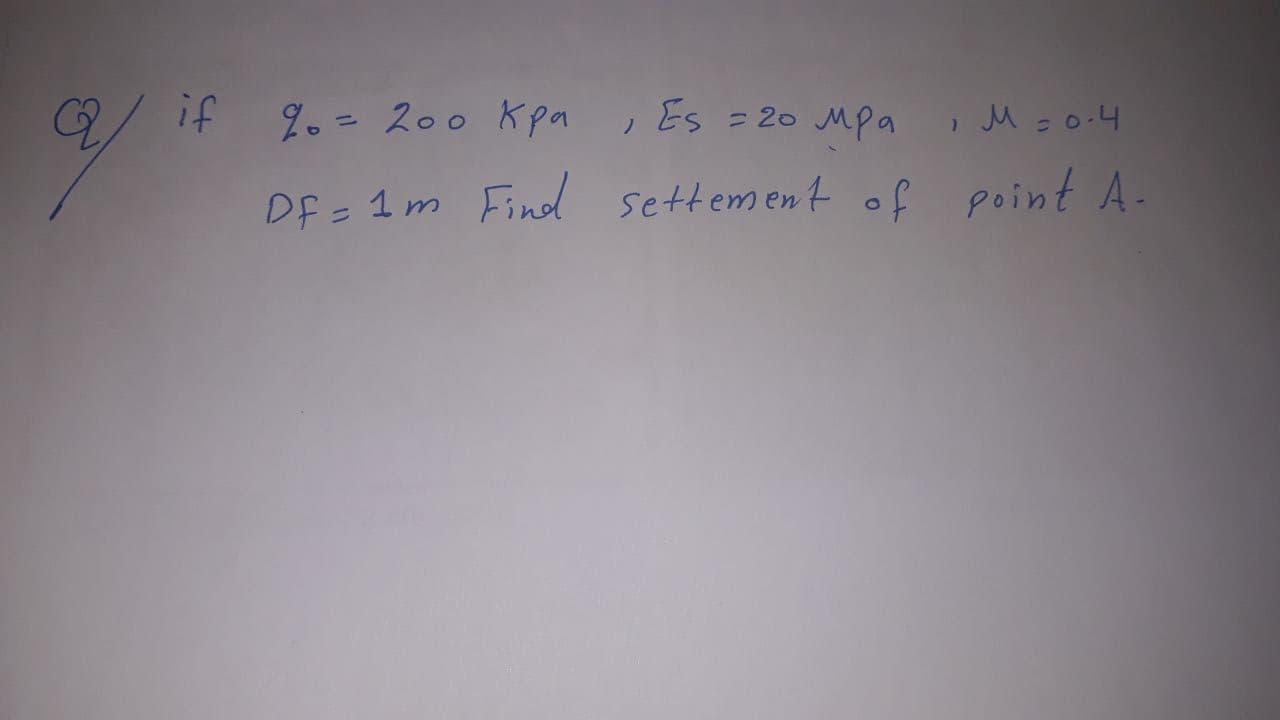 Q/ if q₀ = 200 Kpa , Es = 20 Mpa , M = 0.4
DF = 1m Find settement of point A.